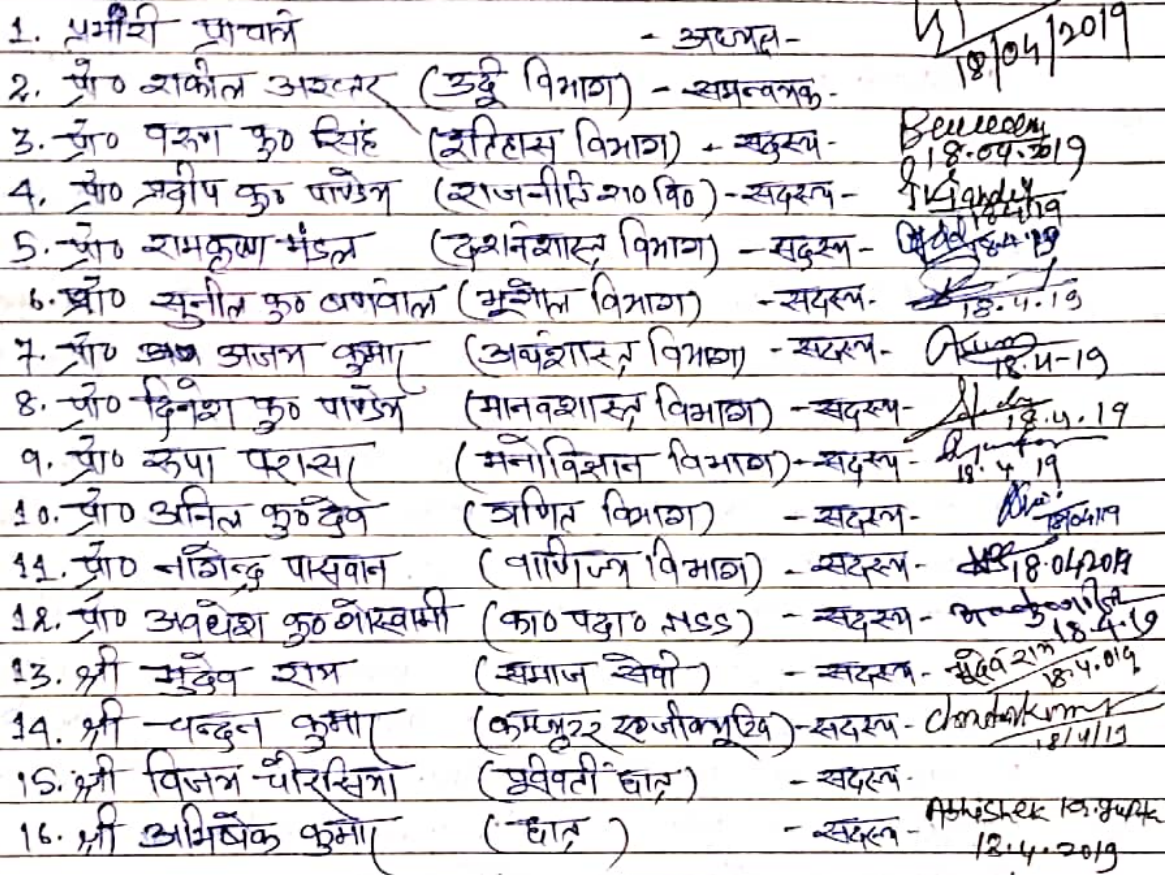 1. प्रभारी प्राचार्य - अध्यक्ष- 18/04/2019
2. प्रो० शकील अख्तर (उर्दू विभाग) - समन्वयक-
3. प्रो० वरुण कु० सिंह (इतिहास विभाग) - सदस्य- 18.04.2019
4. प्रो० प्रदीप कु० पाण्डेय (राजनीति शा० वि०) - सदस्य- 18.4.19
5. प्रो० रामकृष्ण मंडल (दर्शनशास्त्र विभाग) - सदस्य- 18.4.19
6. प्रो० सुनील कु० बर्णवाल (भूगोल विभाग) - सदस्य- 18.4.19
7. प्रो० अजय कुमार (अर्थशास्त्र विभाग) - सदस्य- 18.4-19
8. प्रो० दिनेश कु० पाण्डेय (मानवशास्त्र विभाग) - सदस्य- 18.4.19
9. प्रो० रूपा प्रसाद (मनोविज्ञान विभाग) - सदस्य- 18.4.19
10. प्रो० अनिल कु० देव (गणित विभाग) - सदस्य- 18/04/19
11. प्रो० नागेन्द्र पासवान (वाणिज्य विभाग) - सदस्य- 18.042019
12. प्रो० अवधेश कु० गोस्वामी (का० पदा० NSS) - सदस्य- 18.4.19
13. श्री भुदेव राम (समाज सेवी) - सदस्य- भुदेव राम 18.4.019
14. श्री चन्दन कुमार (कम्प्यूटर एग्जीक्यूटिव) - सदस्य- 18/4/19
15. श्री विजय चौरसिया (पूर्ववर्ती छात्र) - सदस्य-
16. श्री अभिषेक कुमार (छात्र) - सदस्य- Abhishek Kr. gupta 18.4.2019